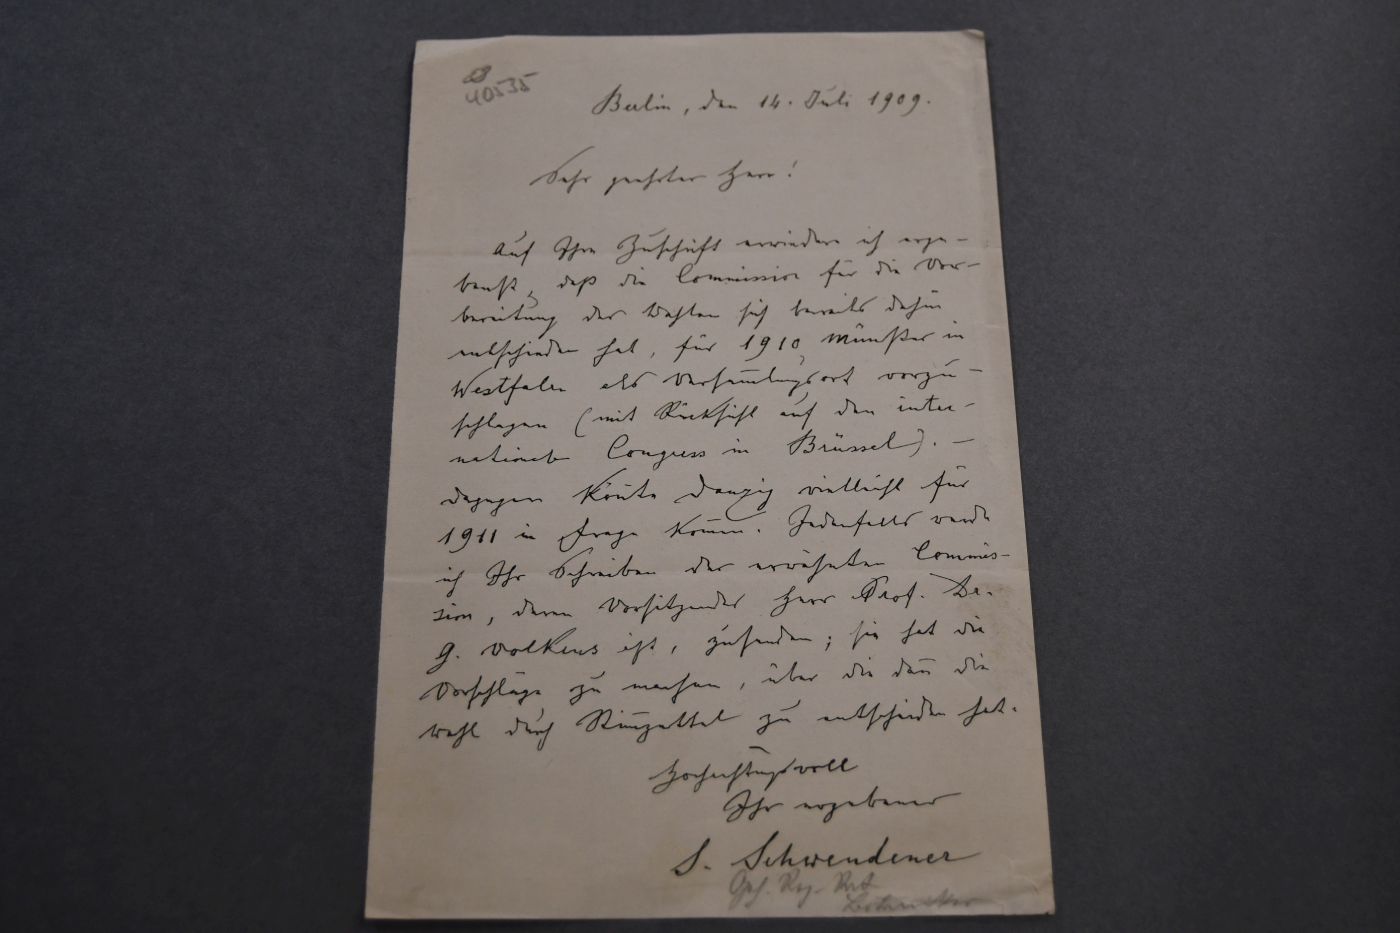 40535
Berlin, den 14. Juli 1909.
Sehr geehrter Herr!
Auf Ihre Zuschrift erwiedere ich erge-
benst, daß die Commission für die Vor-
bereitung der Wahlen sich bereits dahin
entschieden hat, für 1910 Münster in
Westfalen als Versam̄lungsort vorzu-
schlagen (mit Rücksicht auf den inter-
nationalen Congress in Brüssel). —
dagegen kön̄te Danzig vielleicht für
1911 in Frage kom̄en. Jedenfalls werde
ich Ihr Schreiben der erwähnten Commis-
sion, deren Vorsitzender Herr Prof. Dr.
G. Volkens ist, zusenden; sie hat die
Vorschläge zu machen, über die dan̄ die
Wahl durch Stim̄zettel zu entscheiden hat.
Hochachtungsvoll
Ihr ergebener
S. Schwendener
Geh. Reg. Rat
Botaniker